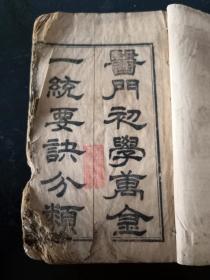 醫門初學萬金
一統要訣分類